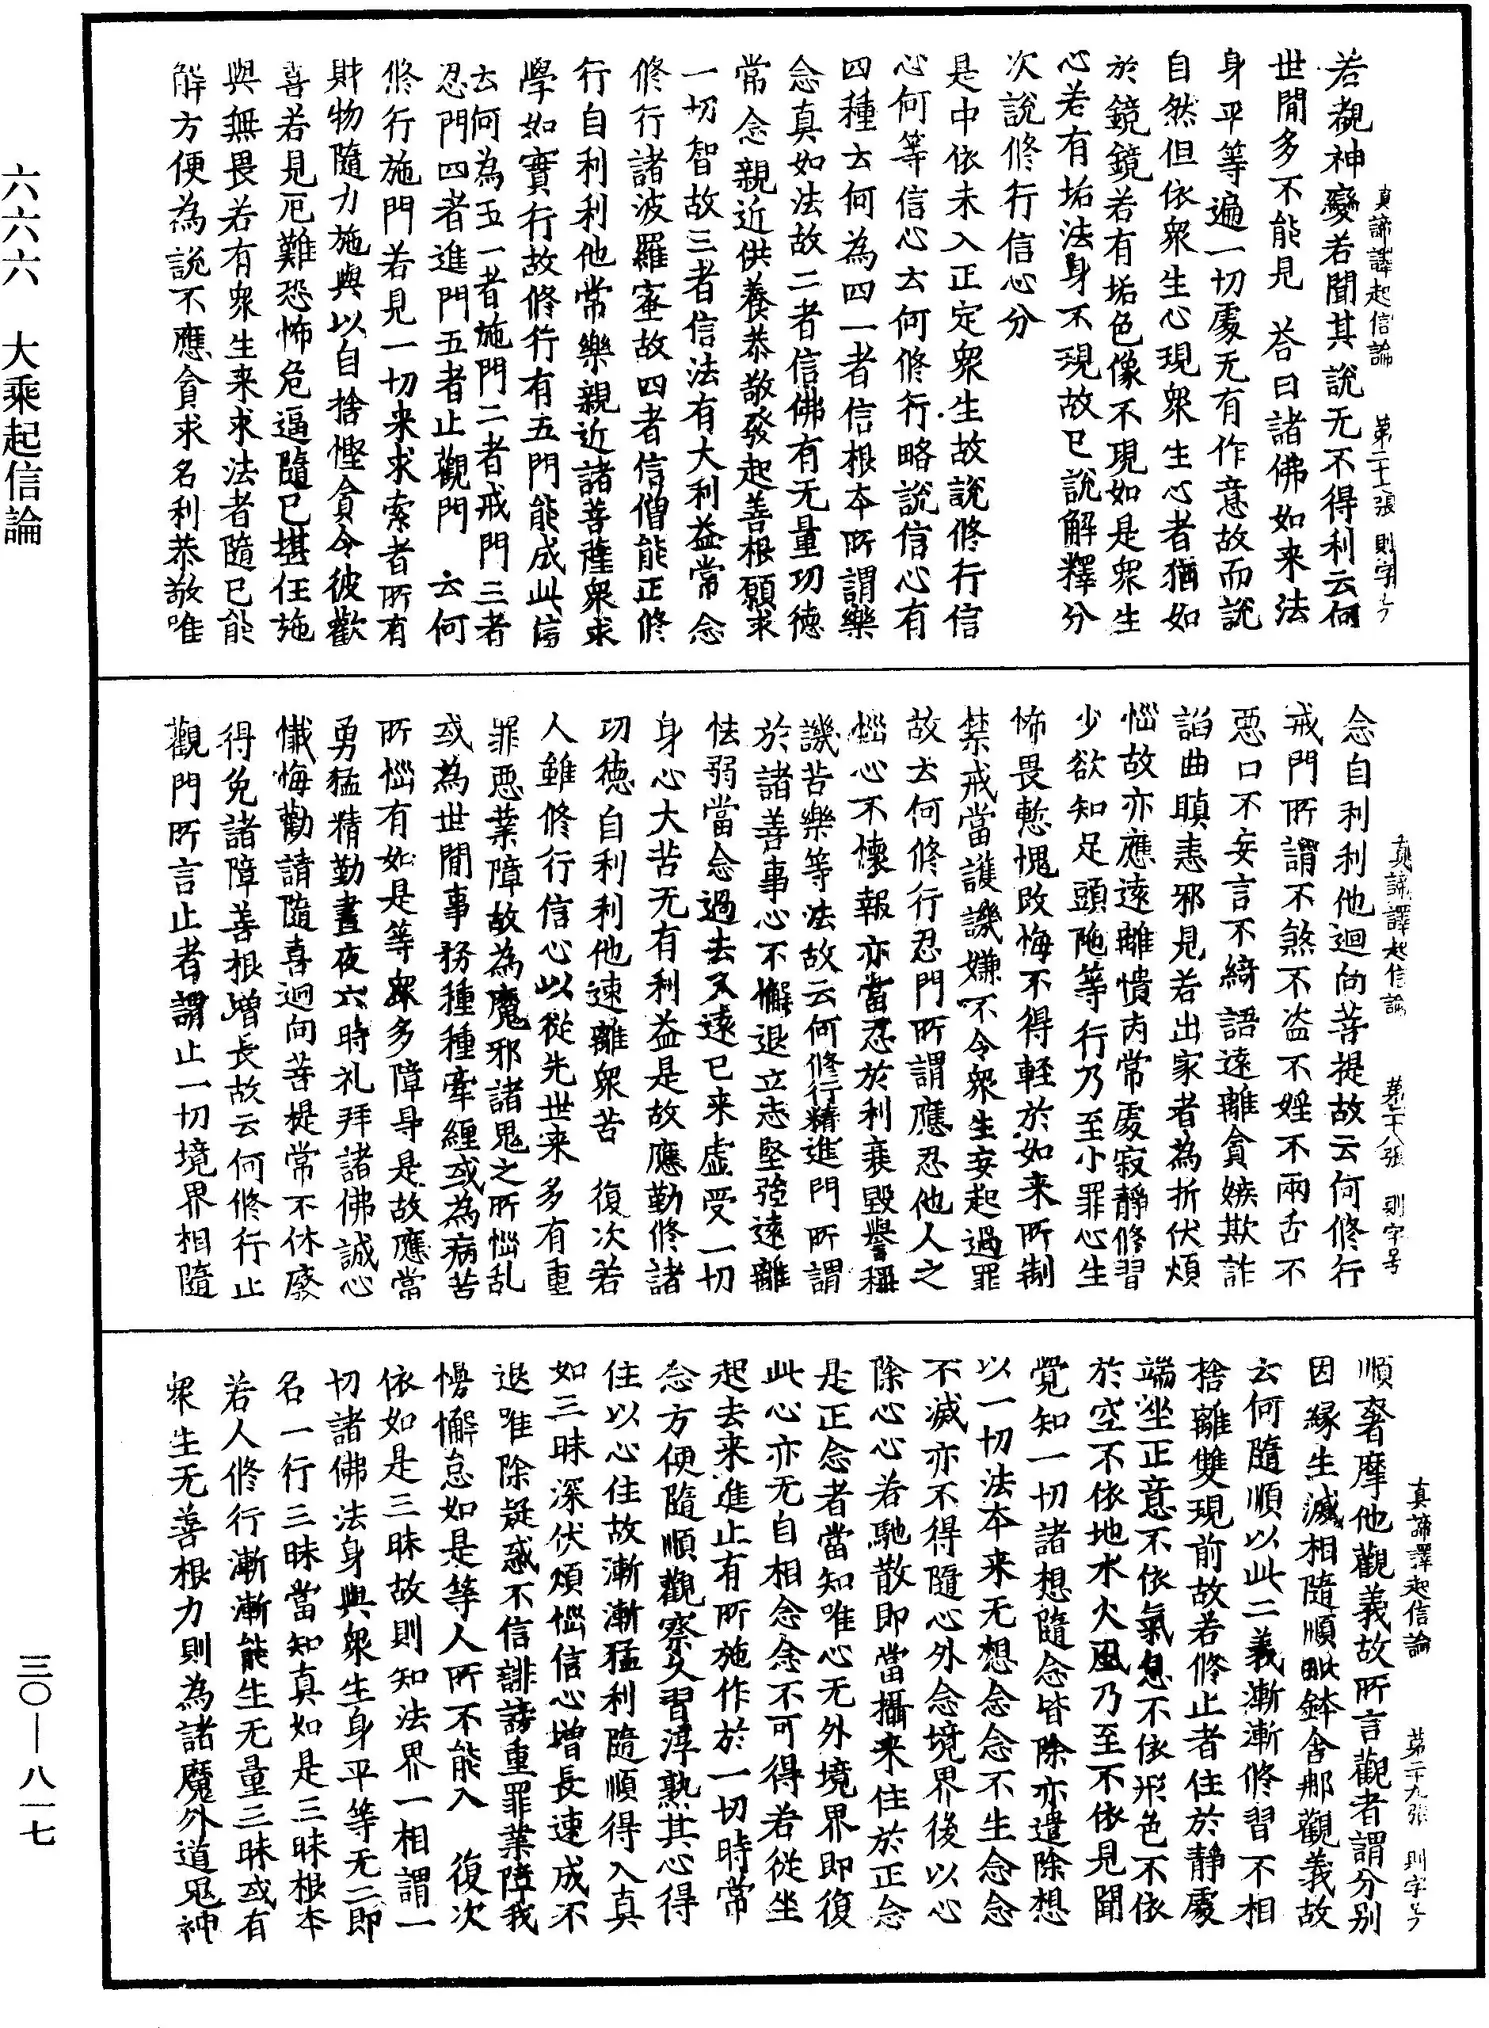 六六六　大乘起信論
三〇—八一七
真諦譯起信論　第二十七張　則字号
若覩神變若聞其說无不得利云何
世間多不能見　荅曰諸佛如来法
身平等遍一切處无有作意故而說
自然但依衆生心現衆生心者猶如
於鏡鏡若有垢色像不現如是衆生
心若有垢法身不現故已說解釋分
次說修行信心分
是中依未入正定衆生故說修行信
心何等信心云何修行略說信心有
四種云何為四一者信根本所謂樂
念真如法故二者信佛有无量功德
常念親近供養恭敬發起善根願求
一切智故三者信法有大利益常念
修行諸波羅蜜故四者信僧能正修
行自利利他常樂親近諸菩薩衆求
學如實行故修行有五門能成此信
云何為五一者施門二者戒門三者
忍門四者進門五者止觀門　云何
修行施門若見一切来求索者所有
財物隨力施與以自捨慳貪令彼歡
喜若見厄難恐怖危逼隨已堪任施
與無畏若有衆生来求法者隨已能
解方便為說不應貪求名利恭敬唯
真諦譯起信論　第二十八張　則字号
念自利利他迴向菩提故云何修行
戒門所謂不煞不盗不婬不兩舌不
惡口不妄言不綺語遠離貪嫉欺詐
諂曲瞋恚邪見若出家者為折伏煩
惱故亦應遠離憒丙常處寂靜修習
少欲知足頭陁等行乃至小罪心生
怖畏慙愧改悔不得輕於如来所制
禁戒當護譏嫌不令衆生妄起過罪
故云何修行忍門所謂應忍他人之
惱心不懷報亦當忍於利衰毀譽稱
譏苦樂等法故云何修行精進門所謂
於諸善事心不懈退立志堅强遠離
怯弱當念過去久遠已来虛受一切
身心大苦无有利益是故應勤修諸
功德自利利他速離衆苦　復次若
人雖修行信心以從先世来多有重
罪惡業障故為魔邪諸鬼之所惱乱
或為世間事務種種牽纏或為病苦
所惱有如是等衆多障㝵是故應當
勇猛精勤晝夜六時礼拜諸佛誠心
懺悔勸請隨喜迴向菩提常不休廢
得免諸障善根增長故云何修行止
觀門所言止者謂止一切境界相隨
真諦譯起信論　第二十九張　則字号
順奢摩他觀義故所言觀者謂分別
因緣生滅相隨順毗鉢舍那觀義故
云何隨順以此二義漸漸修習不相
捨離雙現前故若修止者住於靜處
端坐正意不依氣息不依形色不依
於空不依地水火風乃至不依見聞
覺知一切諸想隨念皆除亦遣除想
以一切法本来无想念念不生念念
不滅亦不得隨心外念境界後以心
除心心若馳散即當攝来住於正念
是正念者當知唯心无外境界即復
此心亦无自相念念不可得若從坐
起去来進止有所施作於一切時常
念方便隨順觀察久習淳熟其心得
住以心住故漸漸猛利隨順得入真
如三昧深伏煩惱信心增長速成不
退唯除疑惑不信誹謗重罪業障我
慢懈怠如是等人所不能入　復次
依如是三昧故則知法界一相謂一
切諸佛法身與衆生身平等无二即
名一行三昧當知真如是三昧根本
若人修行漸漸能生无量三昧或有
衆生无善根力則為諸魔外道鬼神